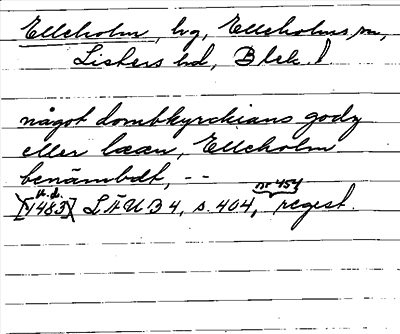 Elleholm, hg, Elleholms sn,
Listers hd, Blek. l.
något dombkyrckians godz
eller læen, Elleholm
benämbdt, --
u.d. nr 454
[1483] LÄU B 4, s. 404, regest.